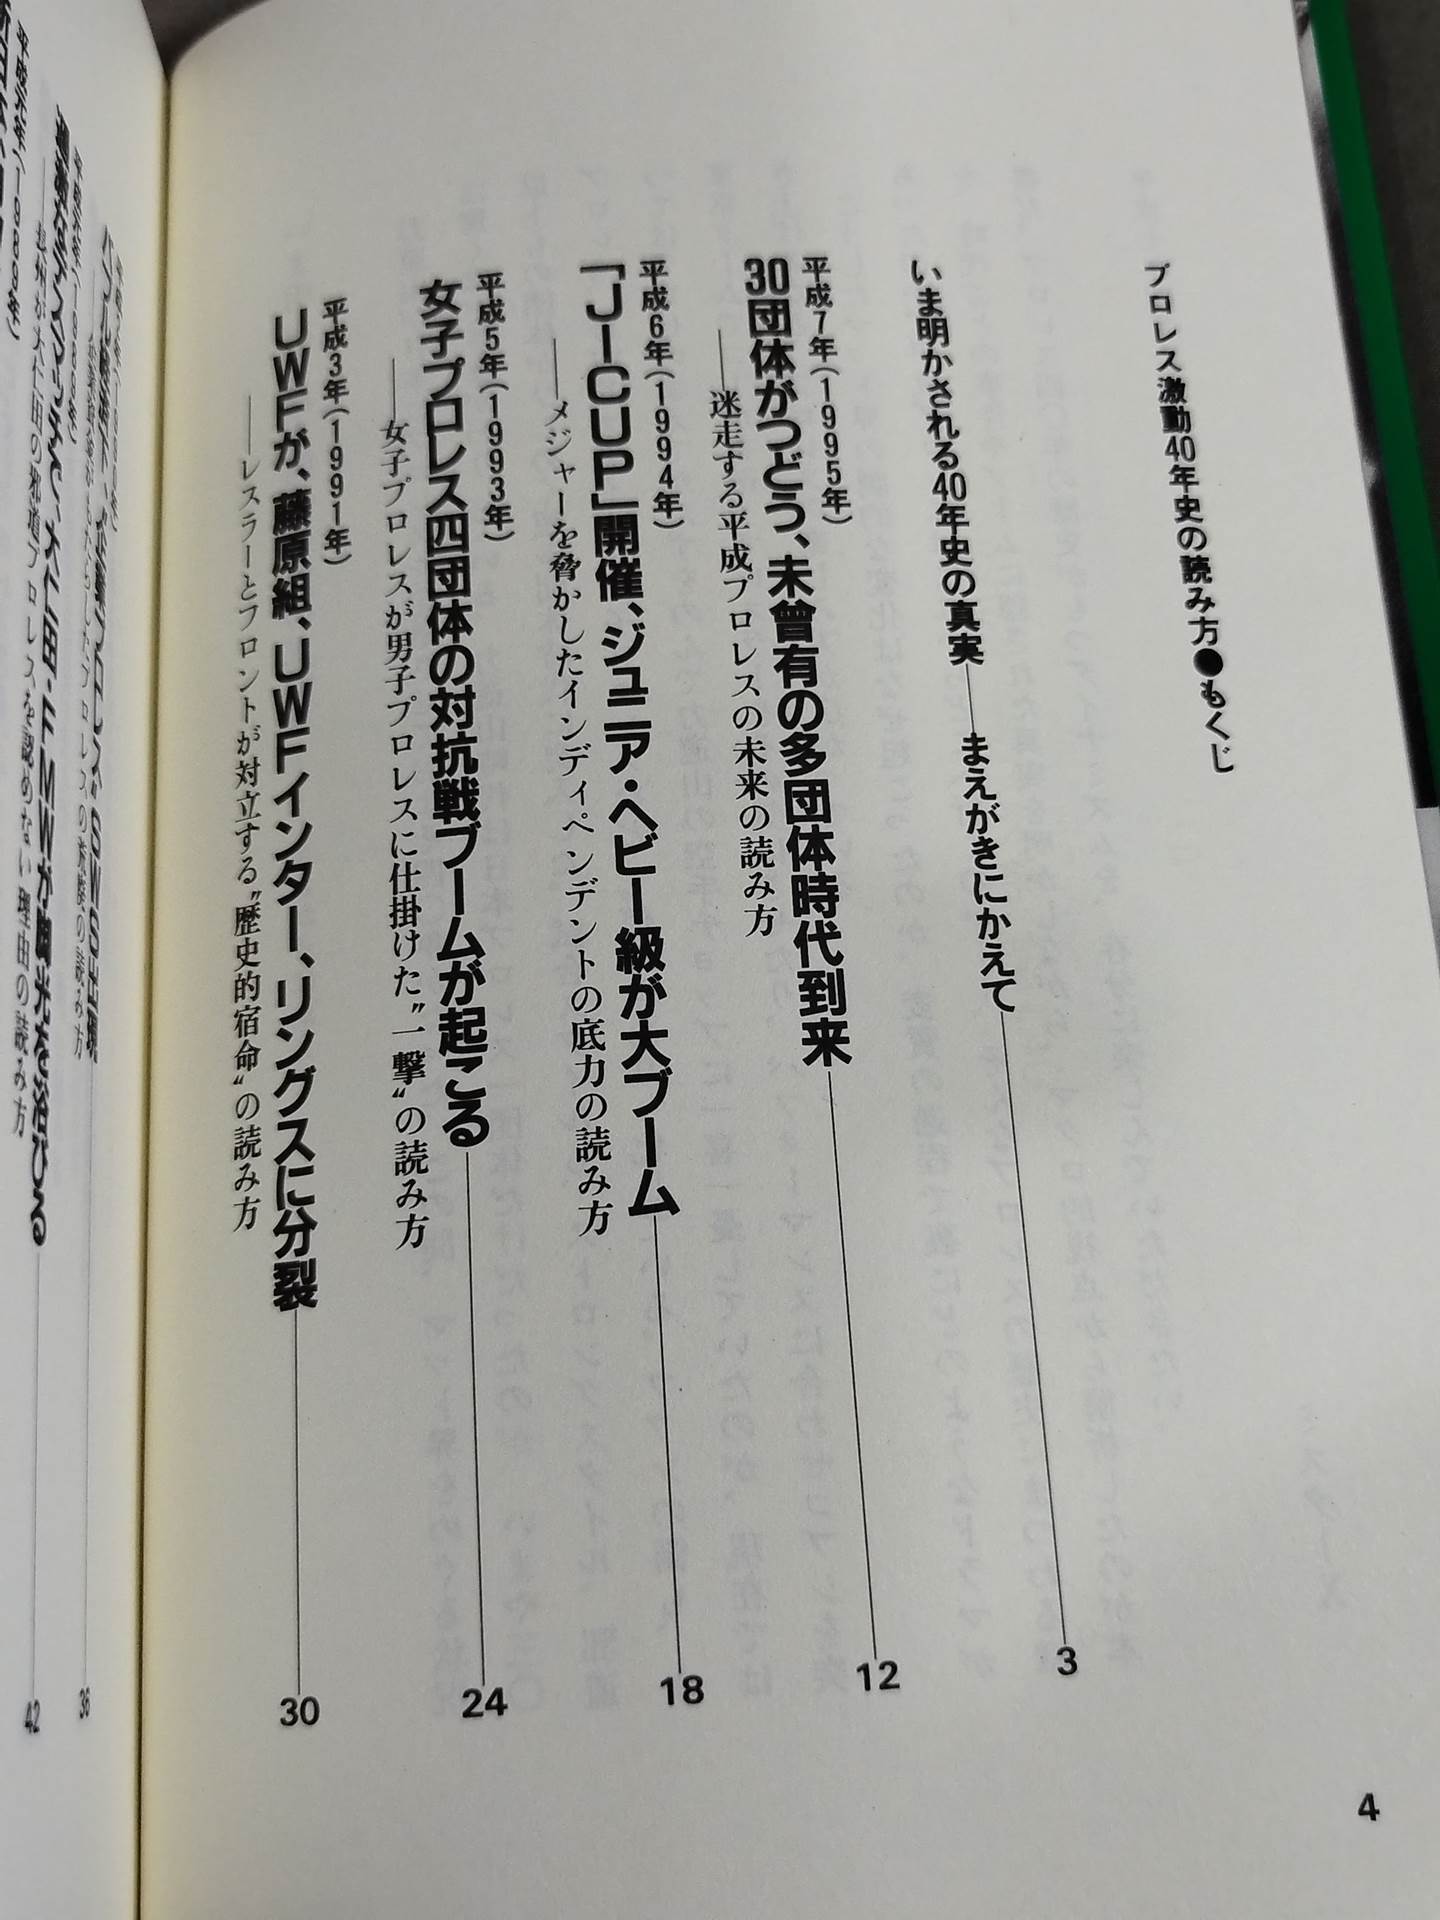 プロレス激動40年史の読み方●もくじ
いま明かされる40年史の真実──まえがきにかえて 3
平成7年(1995年)
30団体がつどう、未曾有の多団体時代到来 12
──迷走する平成プロレスの未来の読み方
平成6年(1994年)
「J-CUP」開催、ジュニア・ヘビー級が大ブーム 18
──メジャーを脅かしたインディペンデントの底力の読み方
平成5年(1993年)
女子プロレス四団体の対抗戦ブームが起こる 24
──女子プロレスが男子プロレスに仕掛けた〝一撃〟の読み方
平成3年(1991年)
UWFが、藤原組、UWFインター、リングスに分裂 30
──レスラーとフロントが対立する〝歴史的宿命〟の読み方
4
SWS出現 36
の読み方
平成元年(1989年)
大仁田・FMWが脚光を浴びる 42
大仁田の邪道プロレスを認めない理由の読み方
平成元年(1989年)